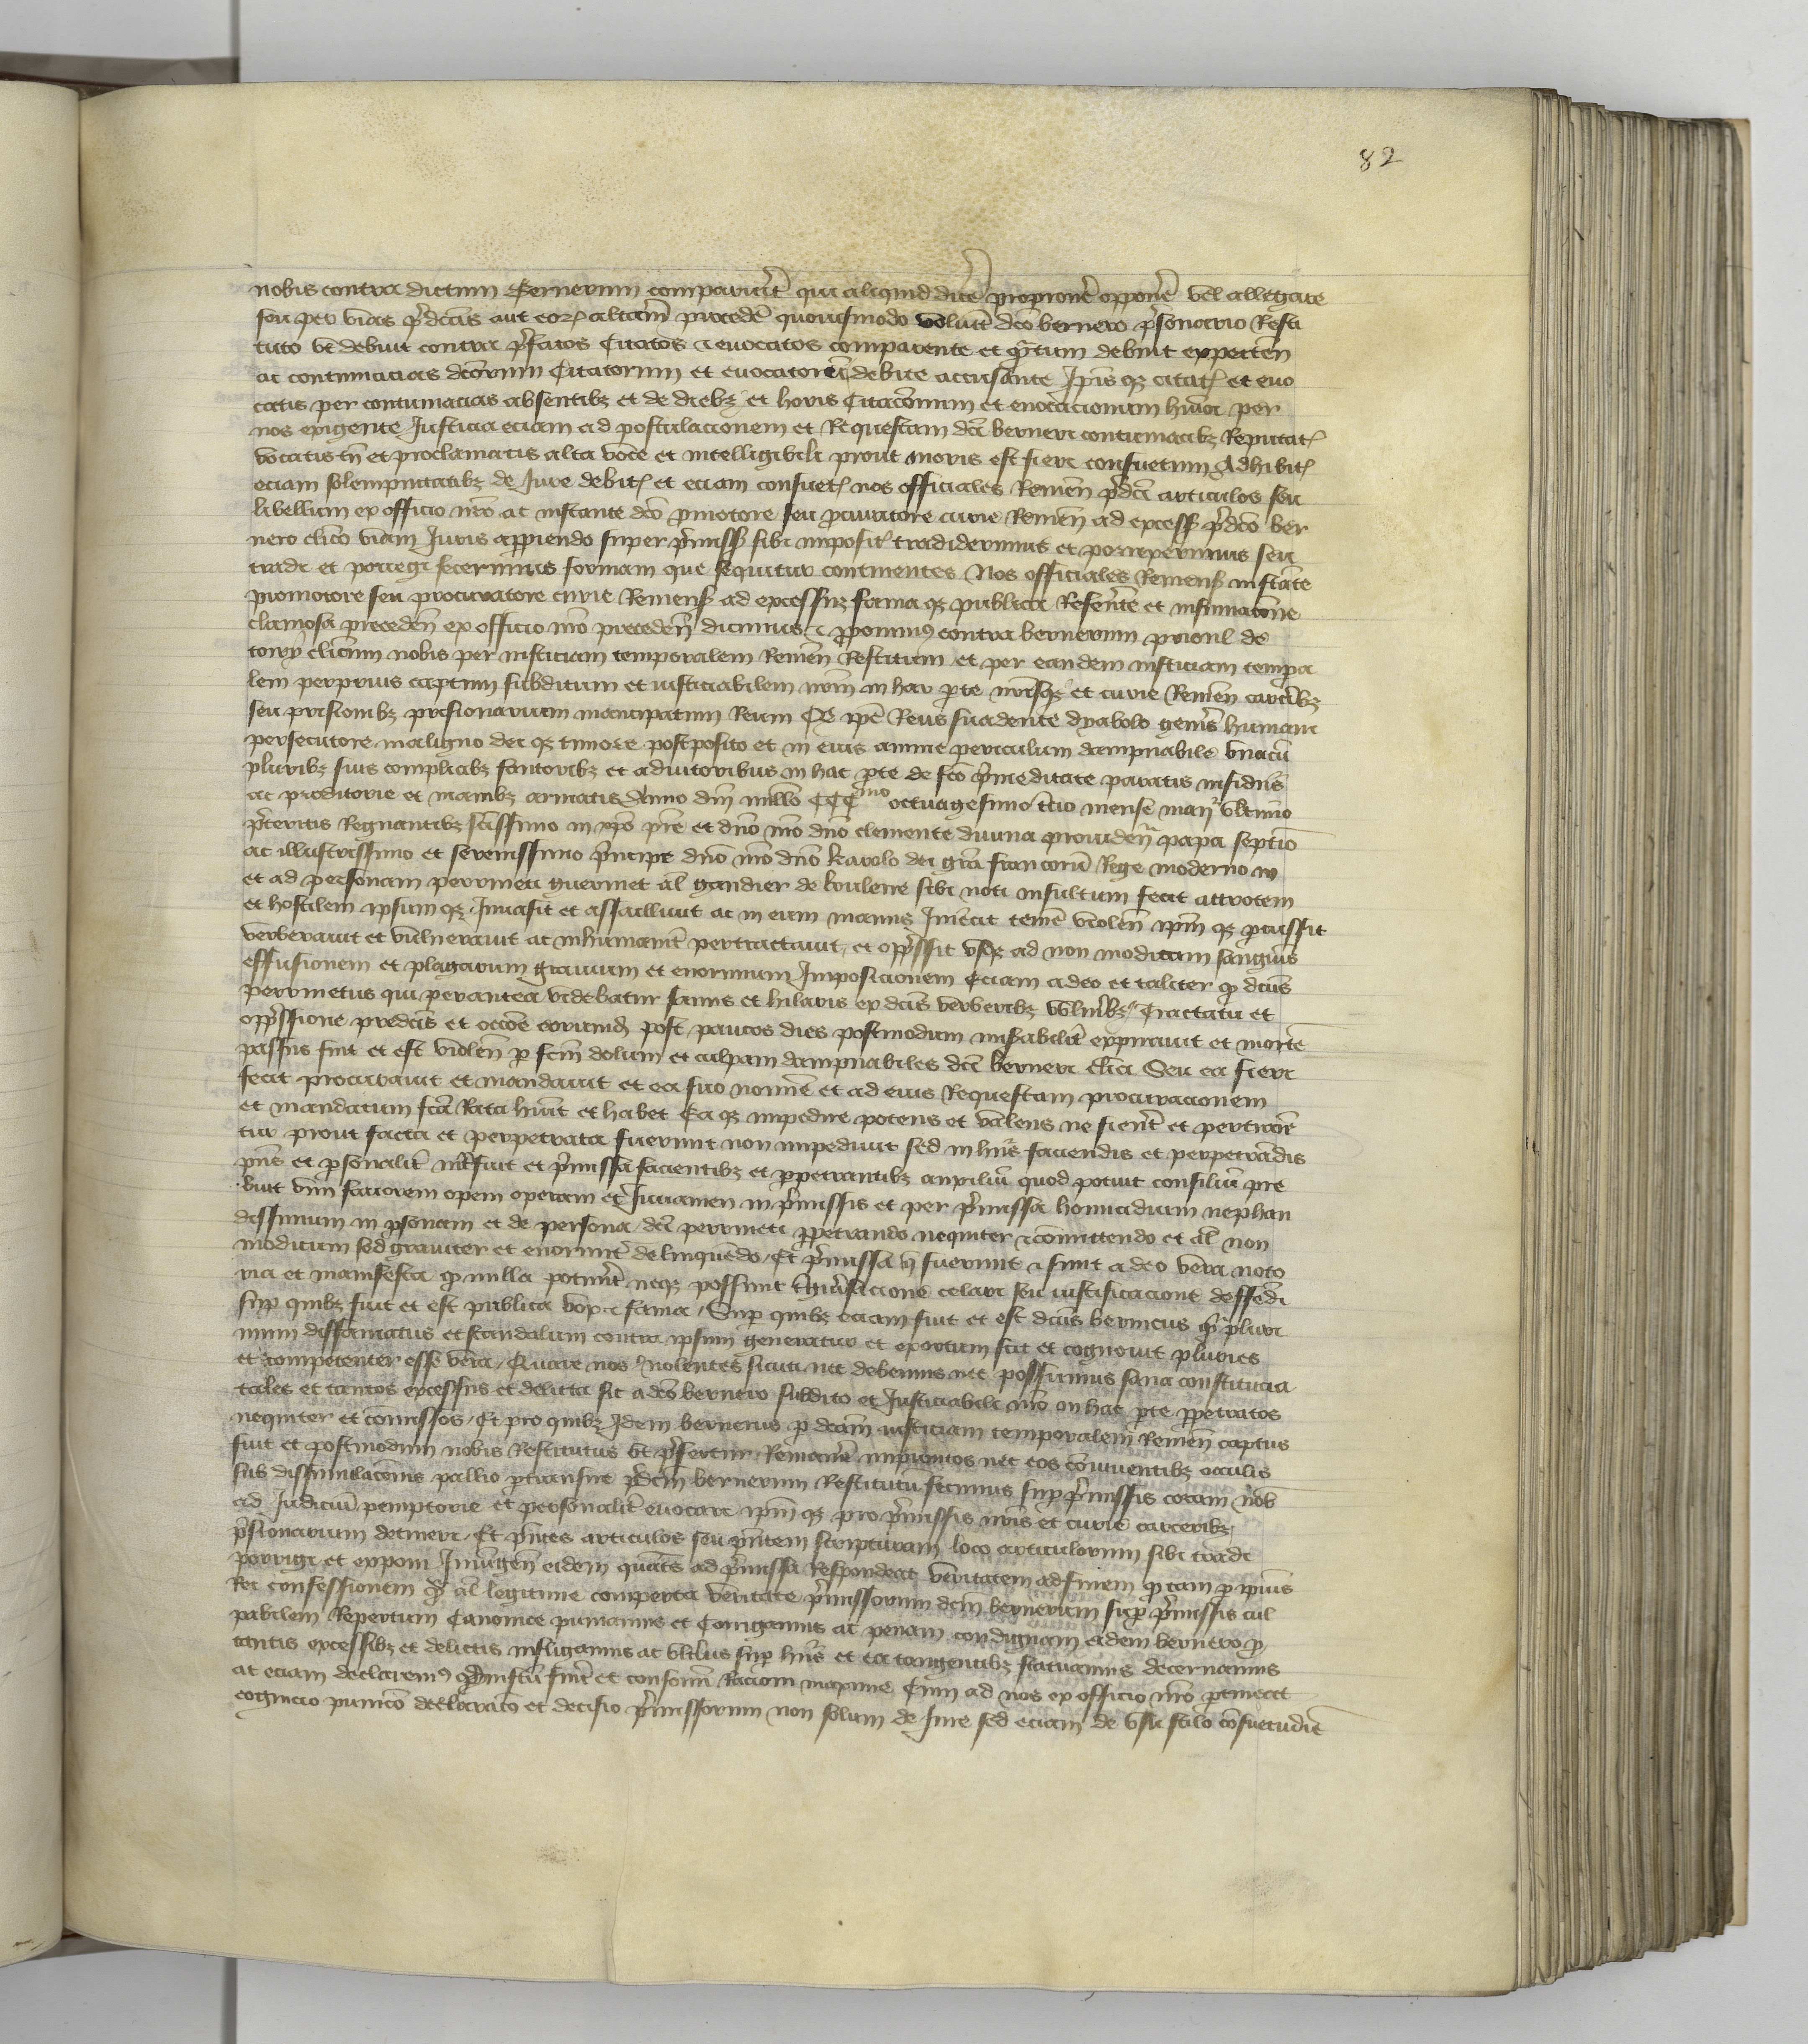 82
nobis contra dictum Bernerum comparuert qui aliquid dice proponere opponere vel allegare
seu per vias pdcas aut eor altam procede quouismodo voluit dco bernero psonario Resti
tuto vt debuit contra pfatos Citatos et euocatos comparente et qntum debuit expecten
ac contumacias dcorum Citatorum et euocatorum debite accusante Ipis qz citat et euo
catis per contumacias absentibz et de diebz et horis Citaconum et euocacionum hmoi per
nos exigente Justicia eciam ad postulacionem et Requestam dci berneri contumacibz Reputat
vocatis tn et proclamatis alta voce et intelligibili prout moris est fieri consuetum Adhibit
eciam solempnitatibz de Jure debit et eciam consuet nos officiales Remen pdci articulos seu
libellum ex officio nro ac instante dco pmotore seu pcuratore curie Remen ad excess pdco ber
nero clico viam Juris appiendo super pmiss sibi imposit tradidermus et porreximus seu
tradi et porregi fecermus formam que sequitur continentes Nos officiales Remens instante
promotore seu procuratore curie Remens ad excessuz fama qz publica Referente et insinuacone
clamosa preceden ex officio nro preceden dicimus et pponimus contra bernerum prionl de
tory clicum nobis per insticiam temporalem Remen Restitum et per eandem insticiam tempa
lem perprius captum subditum et iusticiabilem nrm in hac pte nrisqz et curie Remen carcibz
seu prisionibz prisionarium mancipatum Reum Qd ipe Reus suadente dyabolo genis humani
persecutore maligno dei qz timore postposito et in eius anime periculum dampnabile vnacu
pluribz suis complicibz fautoribz et adiutoribus in hac pte de fco pmeditate paratis insidiis
ac proditorie et manibz armatis Anno dni millo CCC mo octuagesimo tcio mense maii vltimo
pteritis Regnantibz scissimo in xpo pre et dno nro dno clemente diuina prouiden papa septio
ac illustrissimo et serenissimo principe dno nro dno karolo dei gra francorum Rege moderno in
et ad personam perrineti guermet al gandier de loulene sibi noti insultum fecit attrotem
et hostilem ipsum qz Inuasit et assailliuit ac in eum manus Iniecit teme violen ipm qz pcussit
verberauit et vulnerauit ac inhumanit pertractauit et oppssit vsqz ad non modicam sanguis
effusionem et plagarum grauium et enormium Imposicionem Eciam adeo et taliter qp dcus
perrinetus qui perantea videbatur sanus et hilaris ex dcis verberibz vulneribz Tractatu et
oppssione predcis et occoe eorumdem post paucos dies postmodum misabilit expirauit et morte
passus fuit et est violen p fcm dolum et culpam dampnabiles dci berneri clici Seu ea fieri
fecit procurauit et mandauit et ea suo nomine et ad eius Requestam procuracionem
et mandatum fca Rata huit et habet Ea qz impedire potens et valens ne fiert et perpet
tur prout facta et perpetrata fuerunt non impediuit sed in hiis faciendis et perpetrandis
pns et psonalit infuit et pmissa facientibz et ppetrantibz auxiliu quod potuit consiliu pre
buit vim fauorem opem operam et Juuamen in pmissis et per pmissa homicidium nephan
dissimum in psonam et de persona dci perrineti ppetrando nequiter et comittendo et al non
modicum sed grauiter et enormit delinquendo Et pmissa fuerunt et sunt adeo vera noto
ria et manifesta qp nulla potuert neqz possunt tgiusacione celari seu iustificacione deffedi
sup quibz fuit et est publica vox et fama Sup quibz eciam fuit et est dcus bernerus plurimum
diffamatus et scandalum contra ipsum generatur et exortum scit et cognouit pluries
et competenter esse vera Quare nos nolentes sicuti nec debemus nec possumus sana consciencia
tales et tantos excessus et delicta sic a dco bernero subdito et Justiciabili nro in hac pte ppetratos
nequiter et comissos Et pro quibz Idem bernerus p dcam iusticiam temporalem Remen captus
fuit et postmodum nobis Restitutus vt pfertur Remanere impunitos nec eos coniuentibz oculis
sub dissimulaconis pallio ptransire pdcm bernerum Restitutu fecimus sup pmissis coram nob
ad Judiciu pemptorie et personalit euocare ipm qz pro pmissis nris et curie carceribz
prisionarium detineri Et pntes articulos seu pntem scripturam loco articulorum sibi tradi
porrigi et exponi Iniungen eidem quats ad pmissa Respondeat veritatem ad finem qp tam p ipius
Rei confessionem qp al legitime comperta veritate pmissorum dcm bernerum sup pmissis cul
pabilem Repertum Canonice puniamus et Corrigamus ac penam condignam eidem bernero p
tantis excessibz et delictis infligamus ac vltius sup hiis et ea tangentibz statuamus decernamus
ac eciam declaremus qd iustu fuit et consonu Racioni maxime Cum ad nos ex officio nro ptineat
cognicio punico declaraco et decisio pmissorum non solum de Jure sed eciam de vsu stilo consuetudie